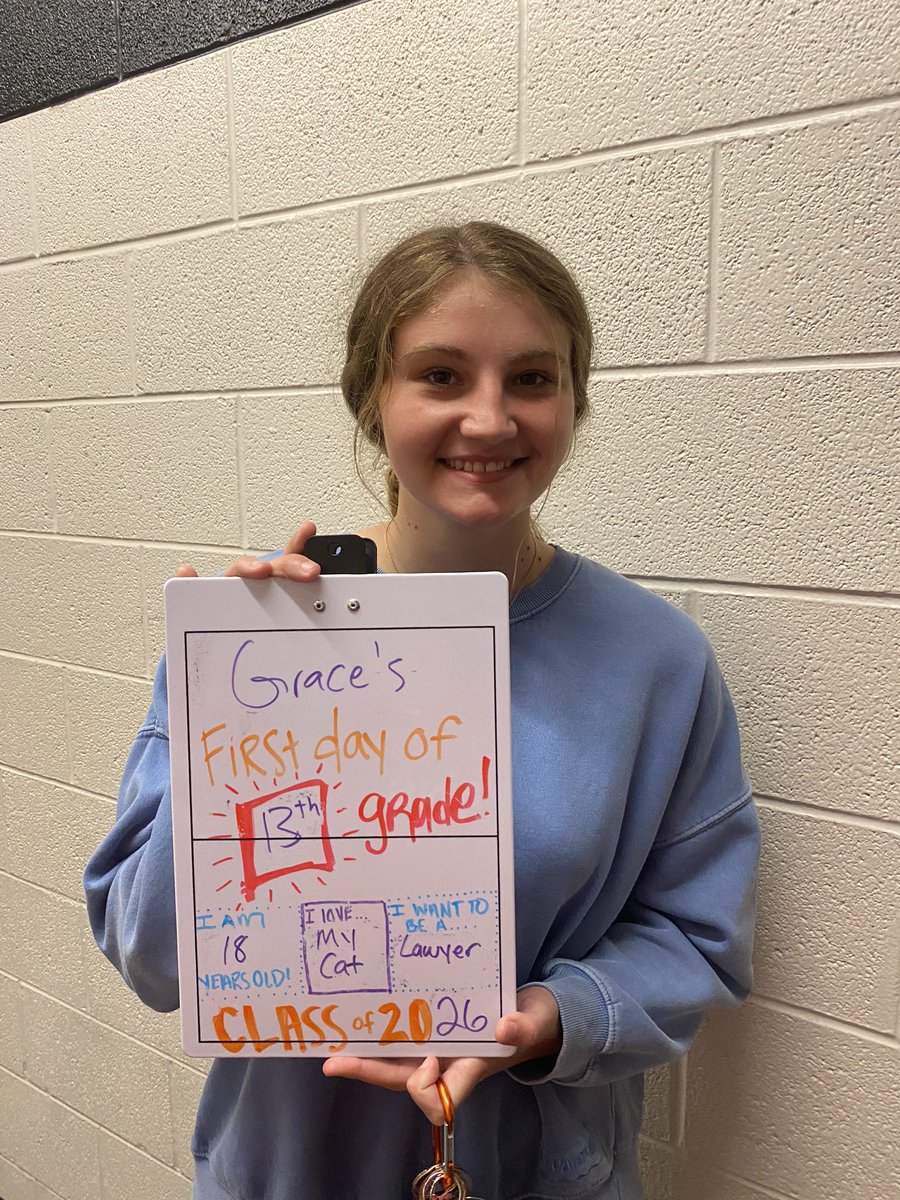 Grace's
First day of
13th grade!
I AM
18
YEARS OLD!
I LOVE...
My
Cat
I WANT TO
BE A....
Lawyer
CLASS of 2026